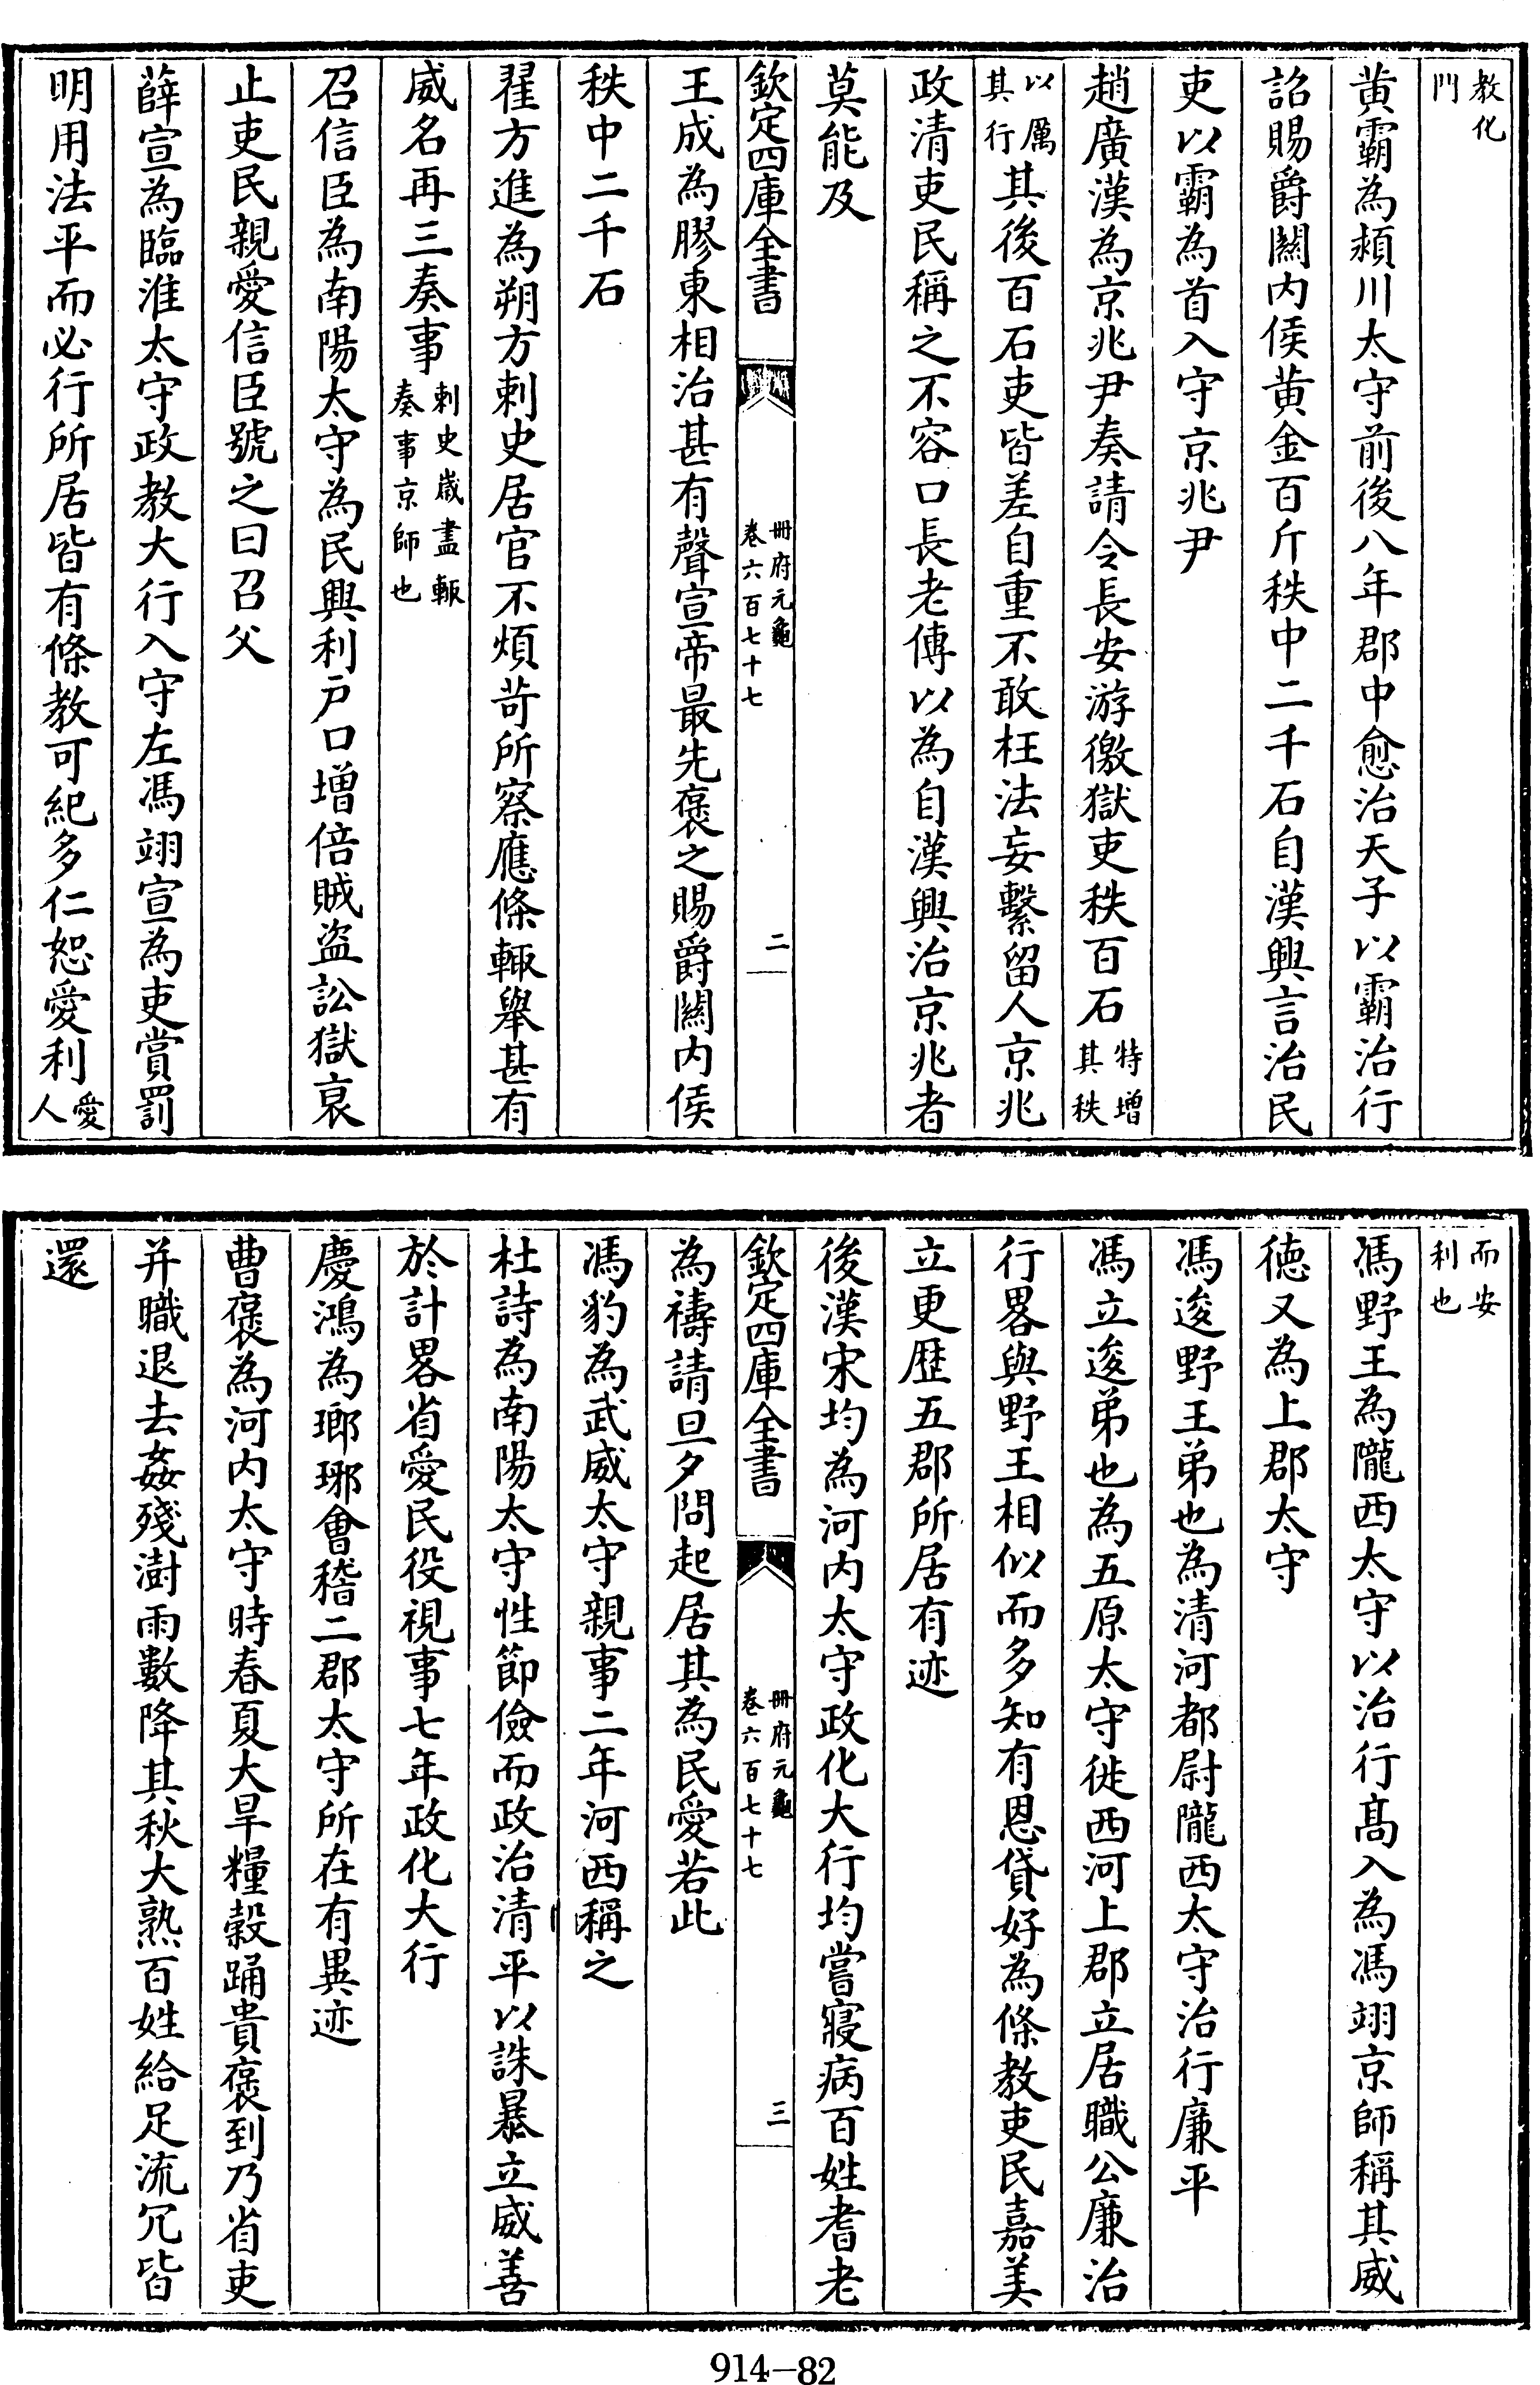 教化
門
黄霸為潁川太守前後八年郡中愈治天子以霸治行
詔賜爵闗内侯黄金百斤秩中二千石自漢興言治民
吏以霸為首入守京兆尹
趙廣漢為京兆尹奏請令長安游徼獄吏秩百石特增其秩
以厲其行其後百石吏皆差自重不敢枉法妄繫留人京兆
政清吏民稱之不容口長老傳以為自漢興治京兆者
莫能及
欽定四庫全書
冊府元龜
卷六百七十七
二
王成為膠東相治甚有聲宣帝最先褒之賜爵闗内侯
秩中二千石
翟方進為朔方刺史居官不煩苛所察應條輒舉甚有
威名再三奏事刺史歲盡輒奏事京師也
召信臣為南陽太守為民興利户口增倍賊盗訟獄衰
止吏民親愛信臣號之曰召父
薛宣為臨淮太守政教大行入守左馮翊宣為吏賞罰
明用法平而必行所居皆有條教可紀多仁恕愛利愛人
而安
利也
馮野王為隴西太守以治行髙入為馮翊京師稱其威
徳又為上郡太守
馮逡野王弟也為清河都尉隴西太守治行廉平
馮立逡弟也為五原太守徙西河上郡立居職公廉治
行畧與野王相似而多知有恩貸好為條教吏民嘉美
立更歴五郡所居有迹
後漢宋均為河内太守政化大行均嘗寢病百姓耆老
欽定四庫全書
冊府元龜
卷六百七十七
三
為禱請旦夕問起居其為民愛若此
馮豹為武威太守親事二年河西稱之
杜詩為南陽太守性節儉而政治清平以誅暴立威善
於計畧省愛民役視事七年政化大行
慶鴻為瑯琊會稽二郡太守所在有異迹
曹褒為河内太守時春夏大旱糧穀踊貴褒到乃省吏
并職退去姦殘澍雨數降其秋大熟百姓給足流冗皆
還
914-82